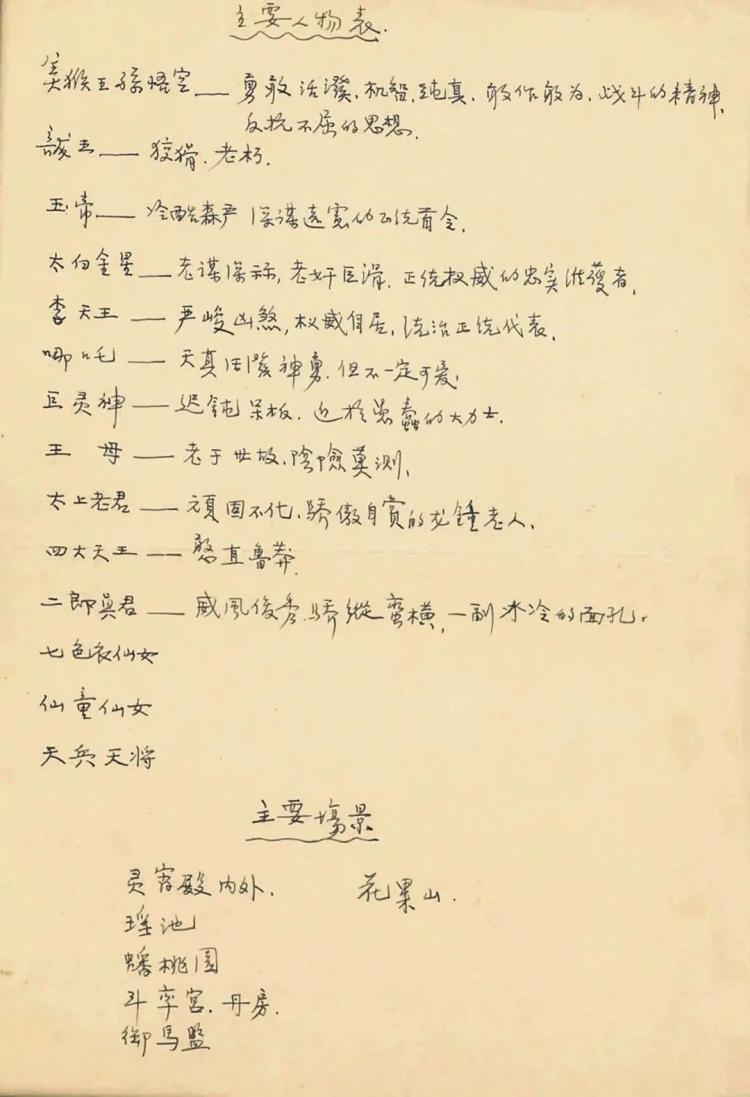 主要人物表.
美猴王孫悟空——勇敢活潑.机智.純真.敢作敢为.战斗的精神.
反抗不屈的思想.
龍王——狡猾.老朽.
玉帝——冷酷森严 深謀遠慮的正統首令.
太白金星——老謀深祘,老奸巨滑.正統权威的忠实維護者.
李天王——严峻凶煞,权威自居,統治正統代表.
哪吒——天真活潑神勇.但不一定可爱.
巨灵神——迟鈍呆板.近於愚蠢的大力士.
王 母——老于世故.陰險莫測.
太上老君——頑固不化.驕傲自賞的龙鍾老人.
四大天王——憨直鲁莽.
二郎眞君——威風俊秀.驕縱蛮橫,一副冰冷的面孔.
七色衣仙女
仙童仙女
天兵天将
主要場景
灵霄殿内外. 花果山.
瑶池
蟠桃园
斗率宫.丹房.
御馬監